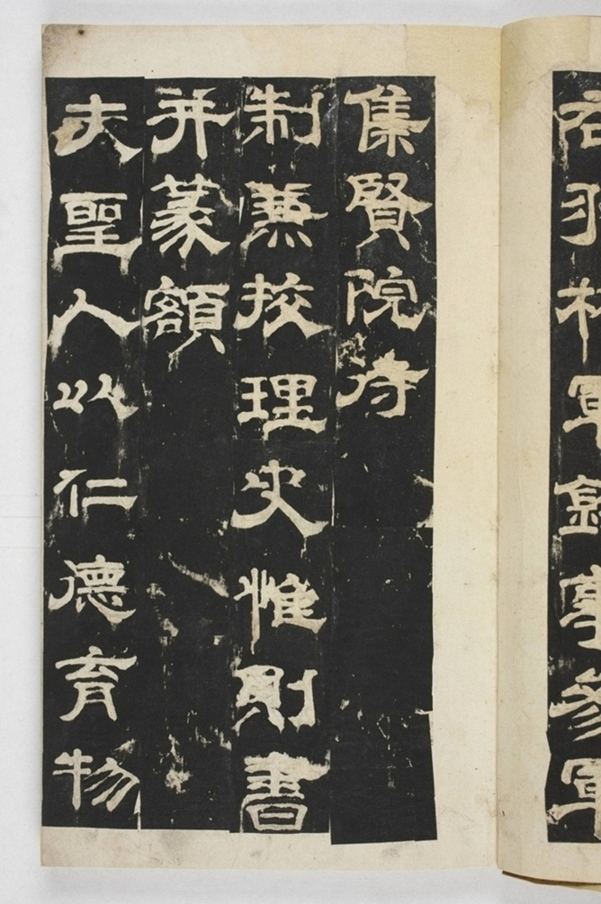 右羽林軍錄事參軍
集賢院待
制兼挍理史惟則書
并篆額
夫聖人以仁德育物